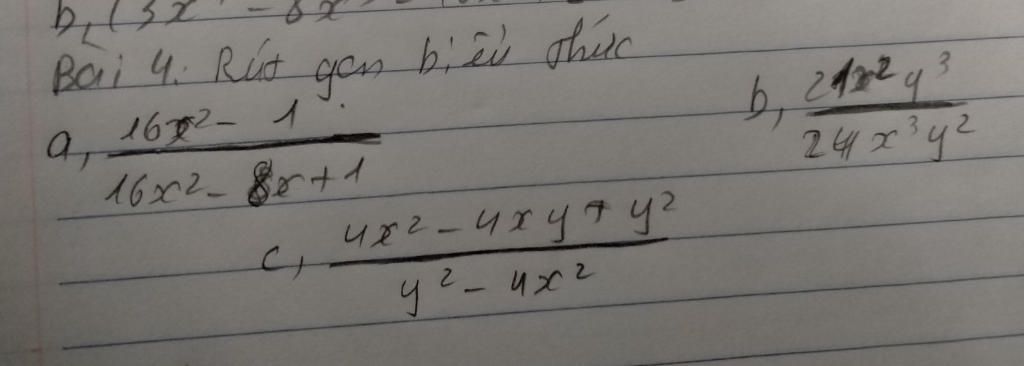 b, (3x - 8x
Bài 4. Rút gọn biểu thức
a, \frac{16x^2 - 1}{16x^2 - 8x + 1}
b, \frac{21x^2y^3}{24x^3y^2}
c, \frac{4x^2 - 4xy + y^2}{y^2 - 4x^2}